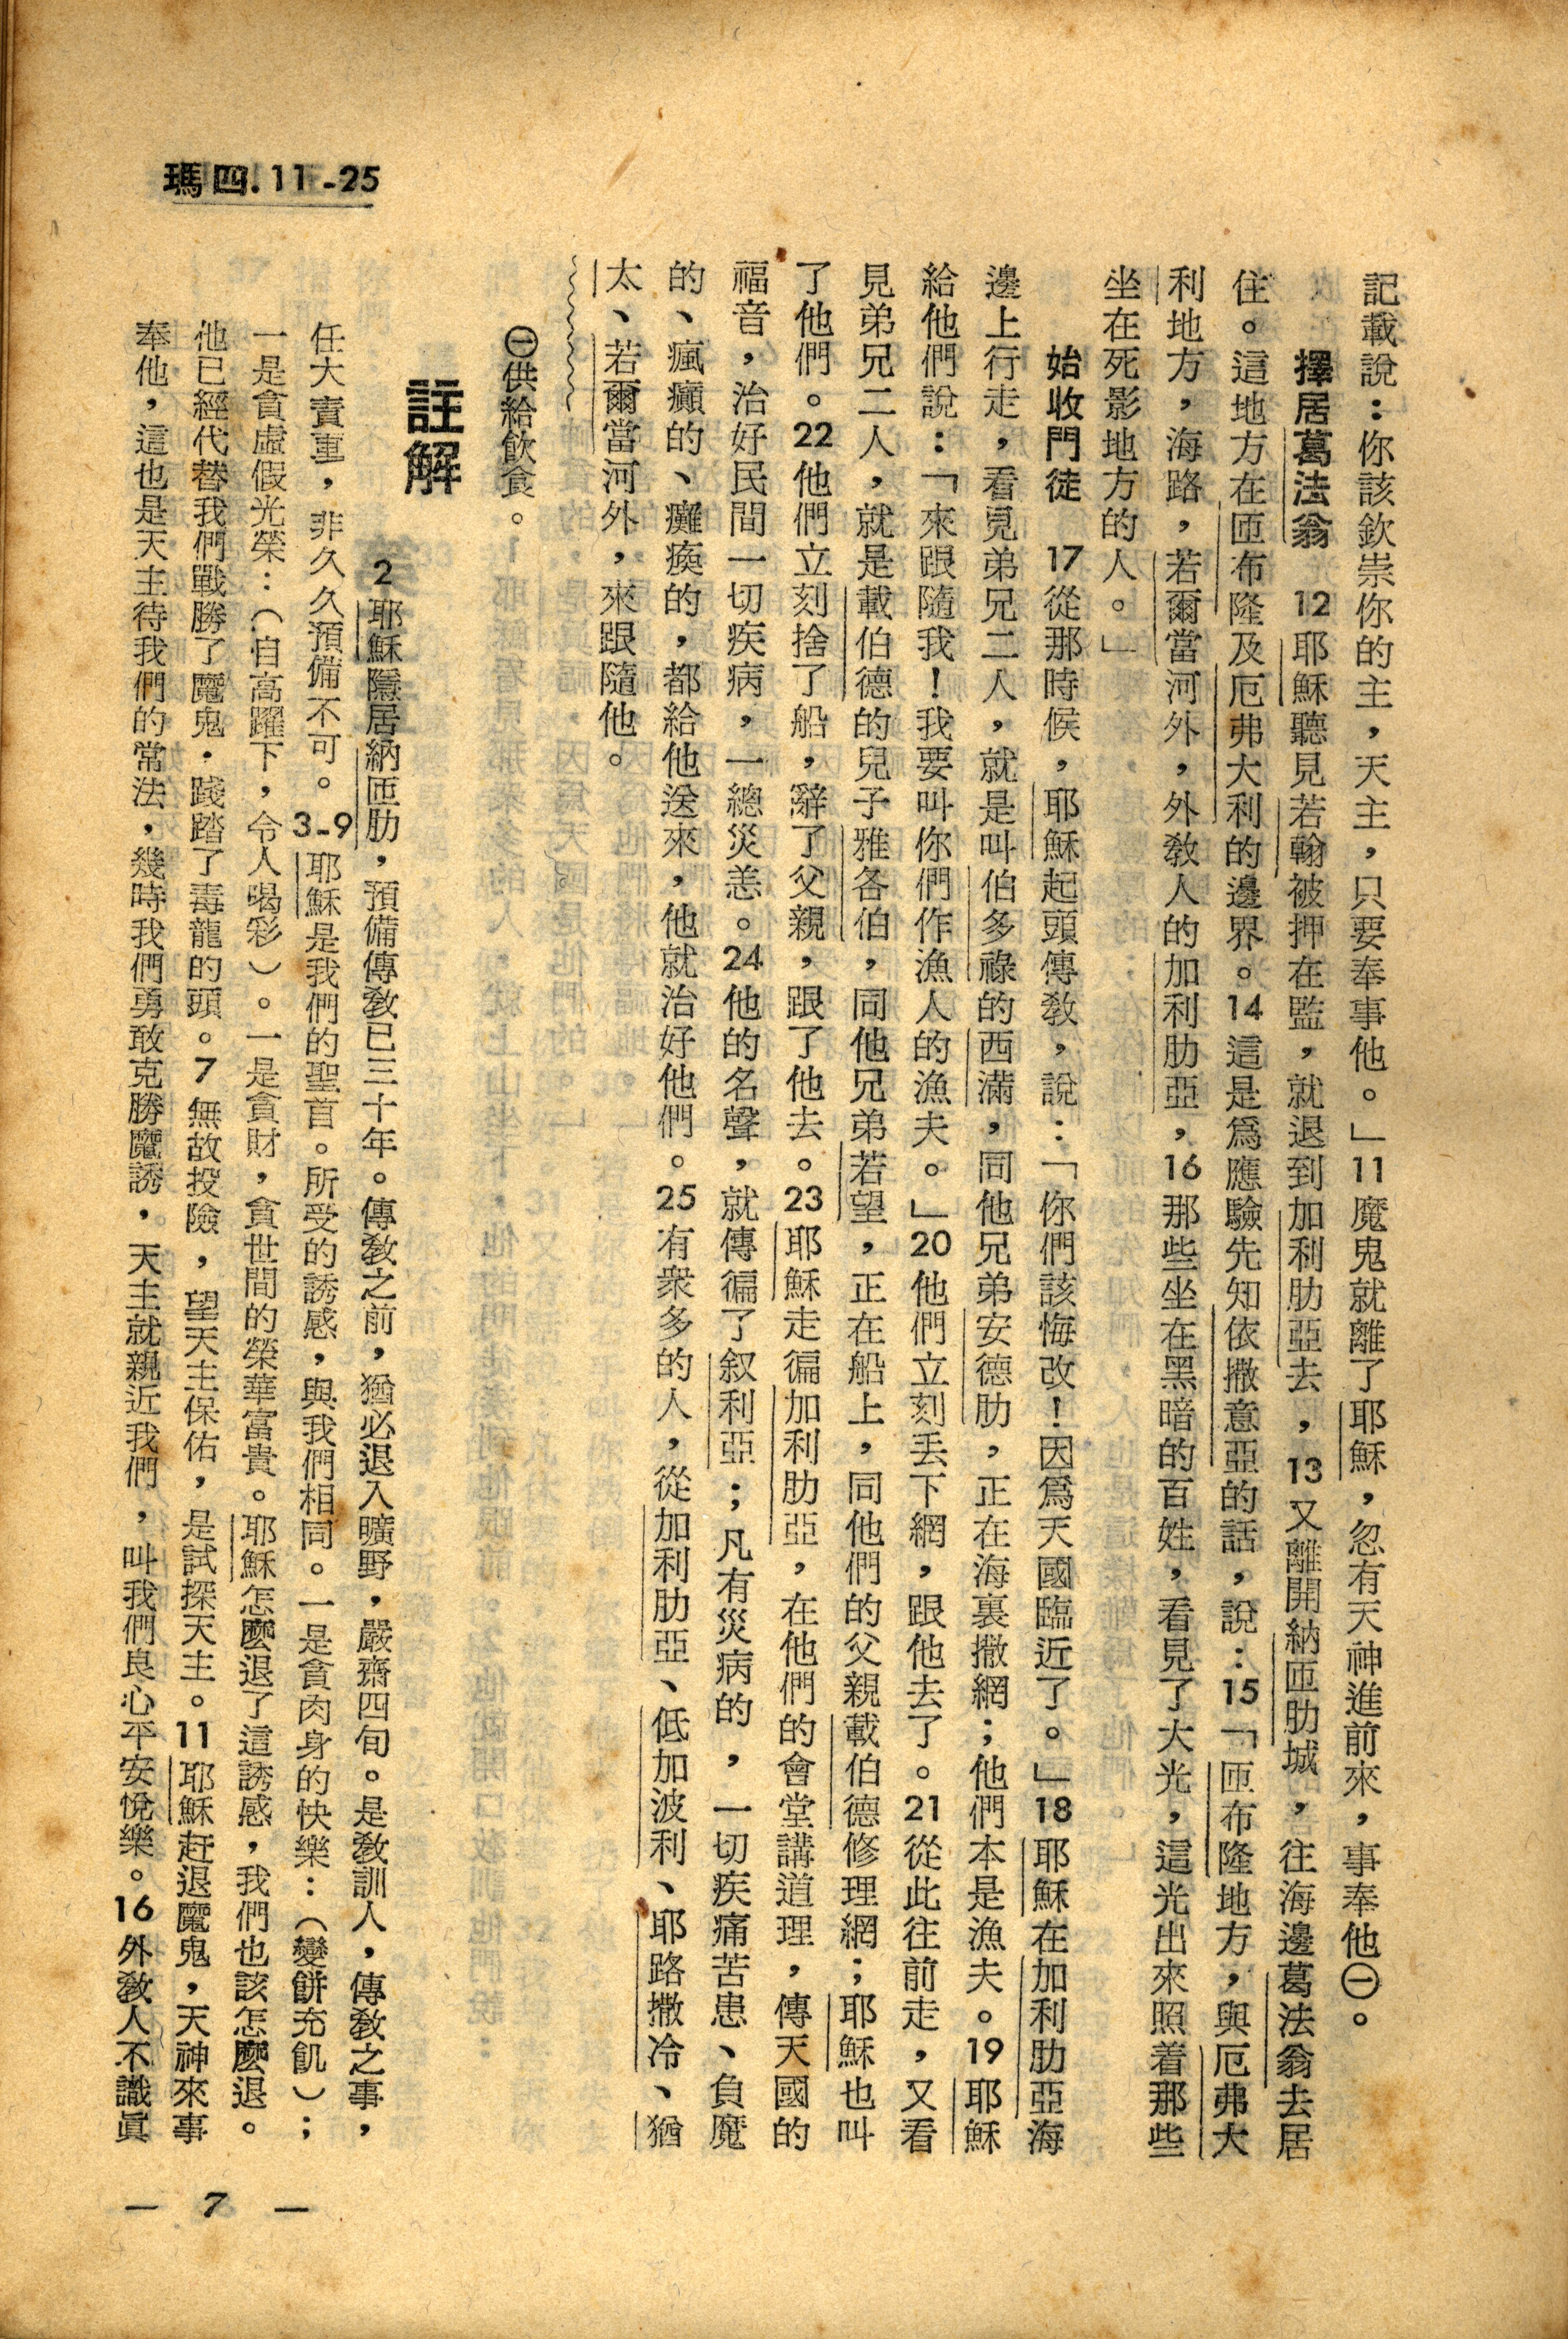 瑪四.11-25
記載說：你該欽崇你的主，天主，只要奉事他。」11魔鬼就離了耶穌，忽有天神進前來，事奉他㊀。
擇居葛法翁　12耶穌聽見若翰被押在監，就退到加利肋亞去，13又離開納匝肋城，往海邊葛法翁去居
住。這地方在匝布隆及厄弗大利的邊界。14這是爲應驗先知依撒意亞的話，說：15「匝布隆地方，與厄弗大
利地方，海路，若爾當河外，外教人的加利肋亞，16那些坐在黑暗的百姓，看見了大光，這光出來照着那些
坐在死影地方的人。」
始收門徒　17從那時候，耶穌起頭傳教，說：「你們該悔改！因爲天國臨近了。」18耶穌在加利肋亞海
邊上行走，看見弟兄二人，就是叫伯多祿的西滿，同他兄弟安德肋，正在海裏撒網；他們本是漁夫。19耶穌
給他們說：「來跟隨我！我要叫你們作漁人的漁夫。」20他們立刻丟下網，跟他去了。21從此往前走，又看
見弟兄二人，就是載伯德的兒子雅各伯，同他兄弟若望，正在船上，同他們的父親載伯德修理網；耶穌也叫
了他們。22他們立刻捨了船，辭了父親，跟了他去。23耶穌走徧加利肋亞，在他們的會堂講道理，傳天國的
福音，治好民間一切疾病，一總災恙。24他的名聲，就傳徧了叙利亞；凡有災病的，一切疾痛苦患、負魔
的、瘋癲的、癱瘓的，都給他送來，他就治好他們。25有衆多的人，從加利肋亞、低加波利、耶路撒冷、猶
太、若爾當河外，來跟隨他。
㊀供給飲食。
註解
2耶穌隱居納匝肋，預備傳教已三十年。傳教之前，猶必退入曠野，嚴齋四旬。是教訓人，傳教之事，
任大責重，非久久預備不可。3-9耶穌是我們的聖首。所受的誘感，與我們相同。一是貪肉身的快樂：（變餅充飢）；
一是貪虛假光榮：（自高躍下，令人喝彩）。一是貪財，貪世間的榮華富貴。耶穌怎麼退了這誘感，我們也該怎麼退。
他已經代替我們戰勝了魔鬼．踐踏了毒龍的頭。7無故投險，望天主保佑，是試探天主。11耶穌赶退魔鬼，天神來事
奉他，這也是天主待我們的常法，幾時我們勇敢克勝魔誘，天主就親近我們，叫我們良心平安悅樂。16外教人不識眞
— 7 —